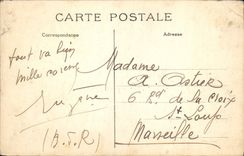 CARTE POSTALE
Correspondance
Adresse
tout va bien
mille
Madame
A. Ostier
6 Rd. de la
St Loup
Marseille
(B.S.R)